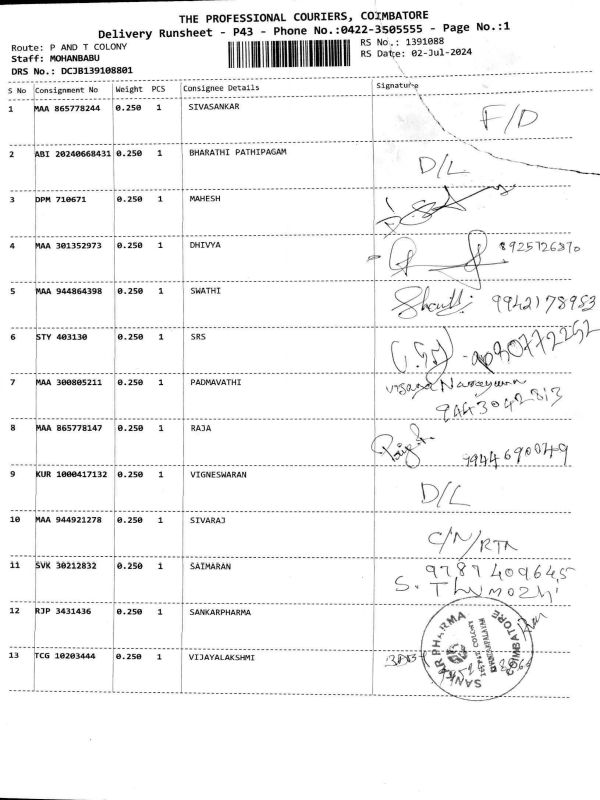 THE PROFESSIONAL COURIERS, COIMBATORE
Delivery Runsheet - P43 - Phone No.:0422-3505555 - Page No.:1
Route: P AND T COLONY
RS No.: 1391088
Staff: MOHANBABU
RS Date: 02-Jul-2024
DRS No.: DCJB139108801
S No Consignment No Weight PCS Consignee Details Signature
1 MAA 865778244 0.250 1 SIVASANKAR F/D
2 ABI 20240668431 0.250 1 BHARATHI PATHIPAGAM D/L
3 DPM 710671 0.250 1 MAHESH
4 MAA 301352973 0.250 1 DHIVYA 8925726370
5 MAA 944864398 0.250 1 SWATHI 9942178953
6 STY 403130 0.250 1 SRS
7 MAA 300805211 0.250 1 PADMAVATHI
9443042313
8 MAA 865778147 0.250 1 RAJA 9944690049
9 KUR 1000417132 0.250 1 VIGNESWARAN D/L
10 MAA 944921278 0.250 1 SIVARAJ C/N/RTN
11 SVK 30212832 0.250 1 SAIMARAN 9789409645
S. THUMOZHI
12 RJP 3431436 0.250 1 SANKARPHARMA
SANKAR PHARMA COIMBATORE
13 TCG 10203444 0.250 1 VIJAYALAKSHMI